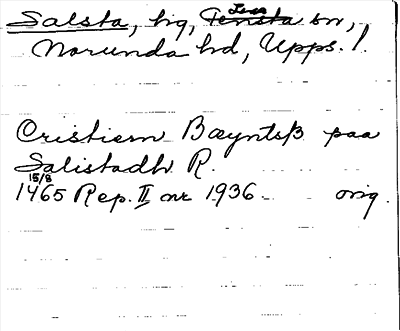 Salsta, hg, Tensta sn,
Norunda hd, Upps. l.
Cristiern Bæyntsß paa
Salistadh R.
15/8
1465 Rep. II nr 1936. orig.